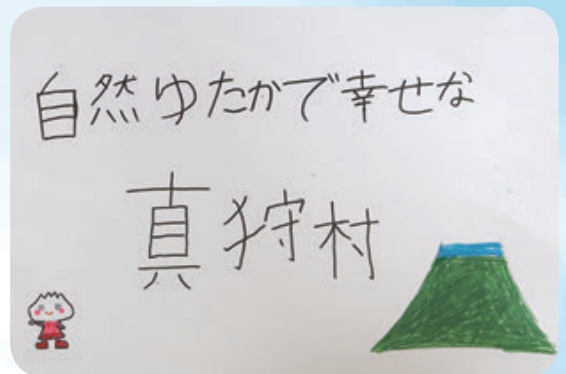 自然ゆたかで幸せな
真狩村